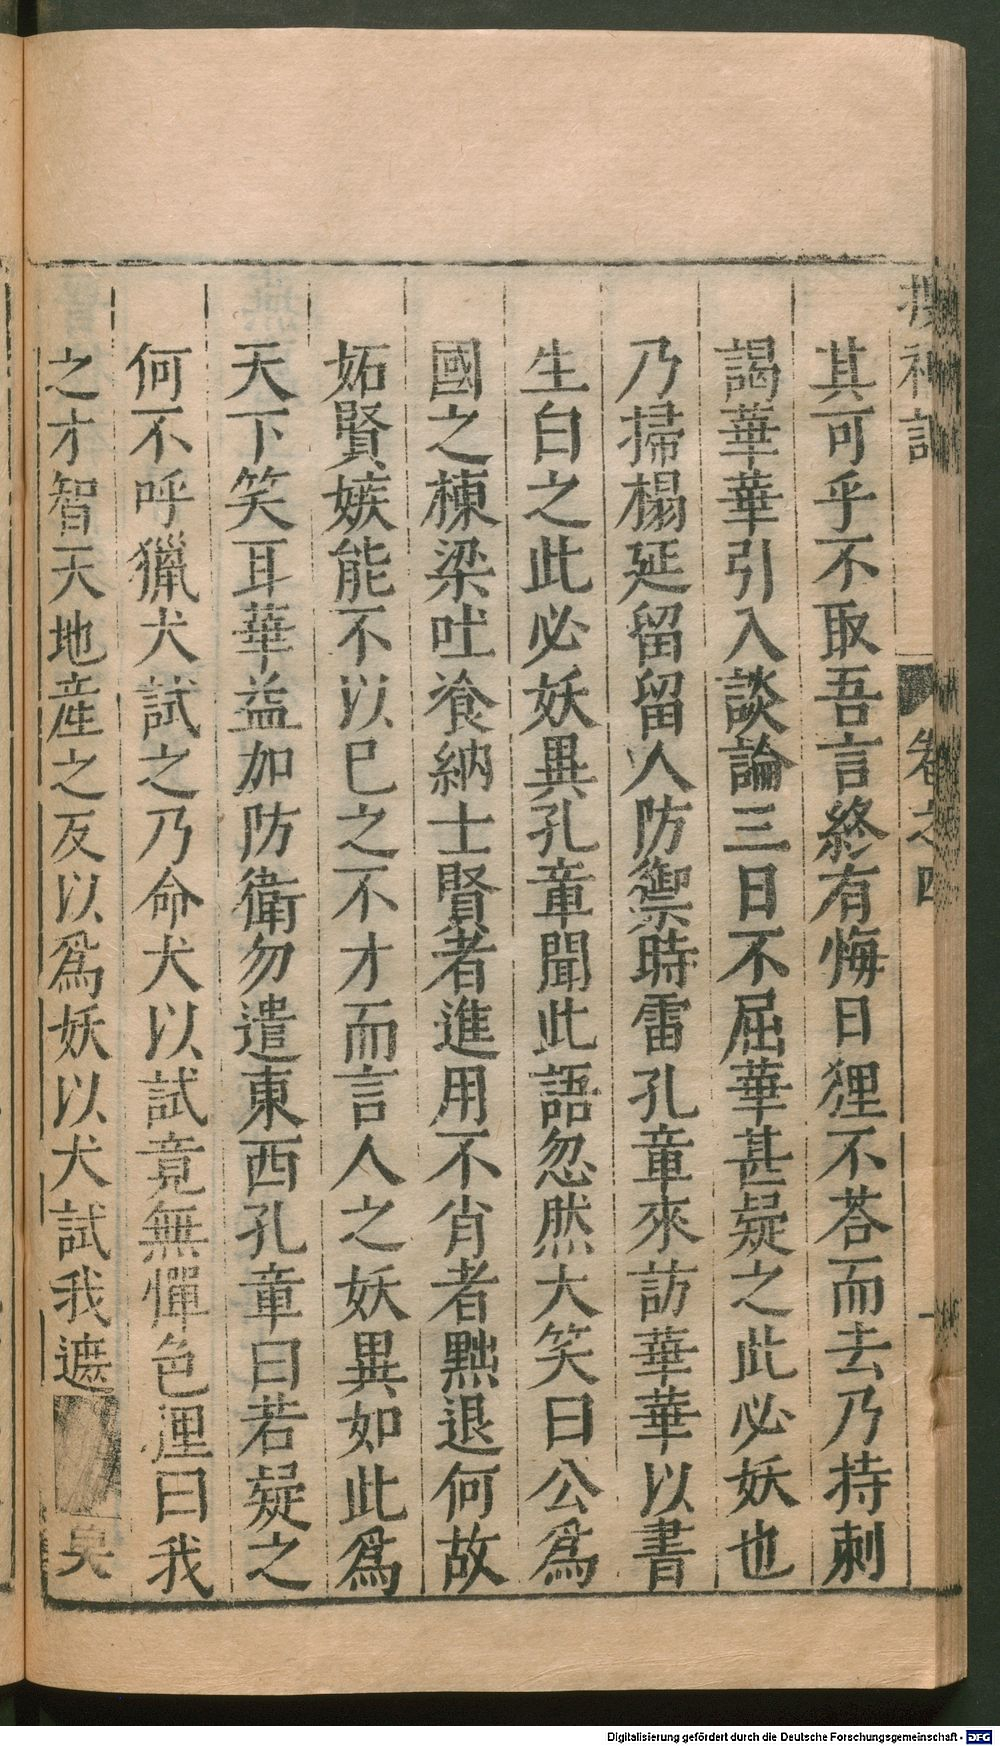 搜神記 卷之四
其可乎不取吾言終有悔日狸不荅而去乃持刺
謁華華引入談論三日不屈華甚疑之此必妖也
乃掃榻延留留人防禦時雷孔章來訪華華以書
生白之此必妖異孔章聞此語忽然大笑曰公爲
國之棟梁吐飡納士賢者進用不肖者黜退何故
妬賢嫉能不以已之不才而言人之妖異如此爲
天下笑耳華益加防衛勿遣東西孔章曰若疑之
何不呼獵犬試之乃命犬以試竟無憚色狸曰我
之才智天地産之反以爲妖以犬試我遮
Digitalisierung gefördert durch die Deutsche Forschungsgemeinschaft - DFG